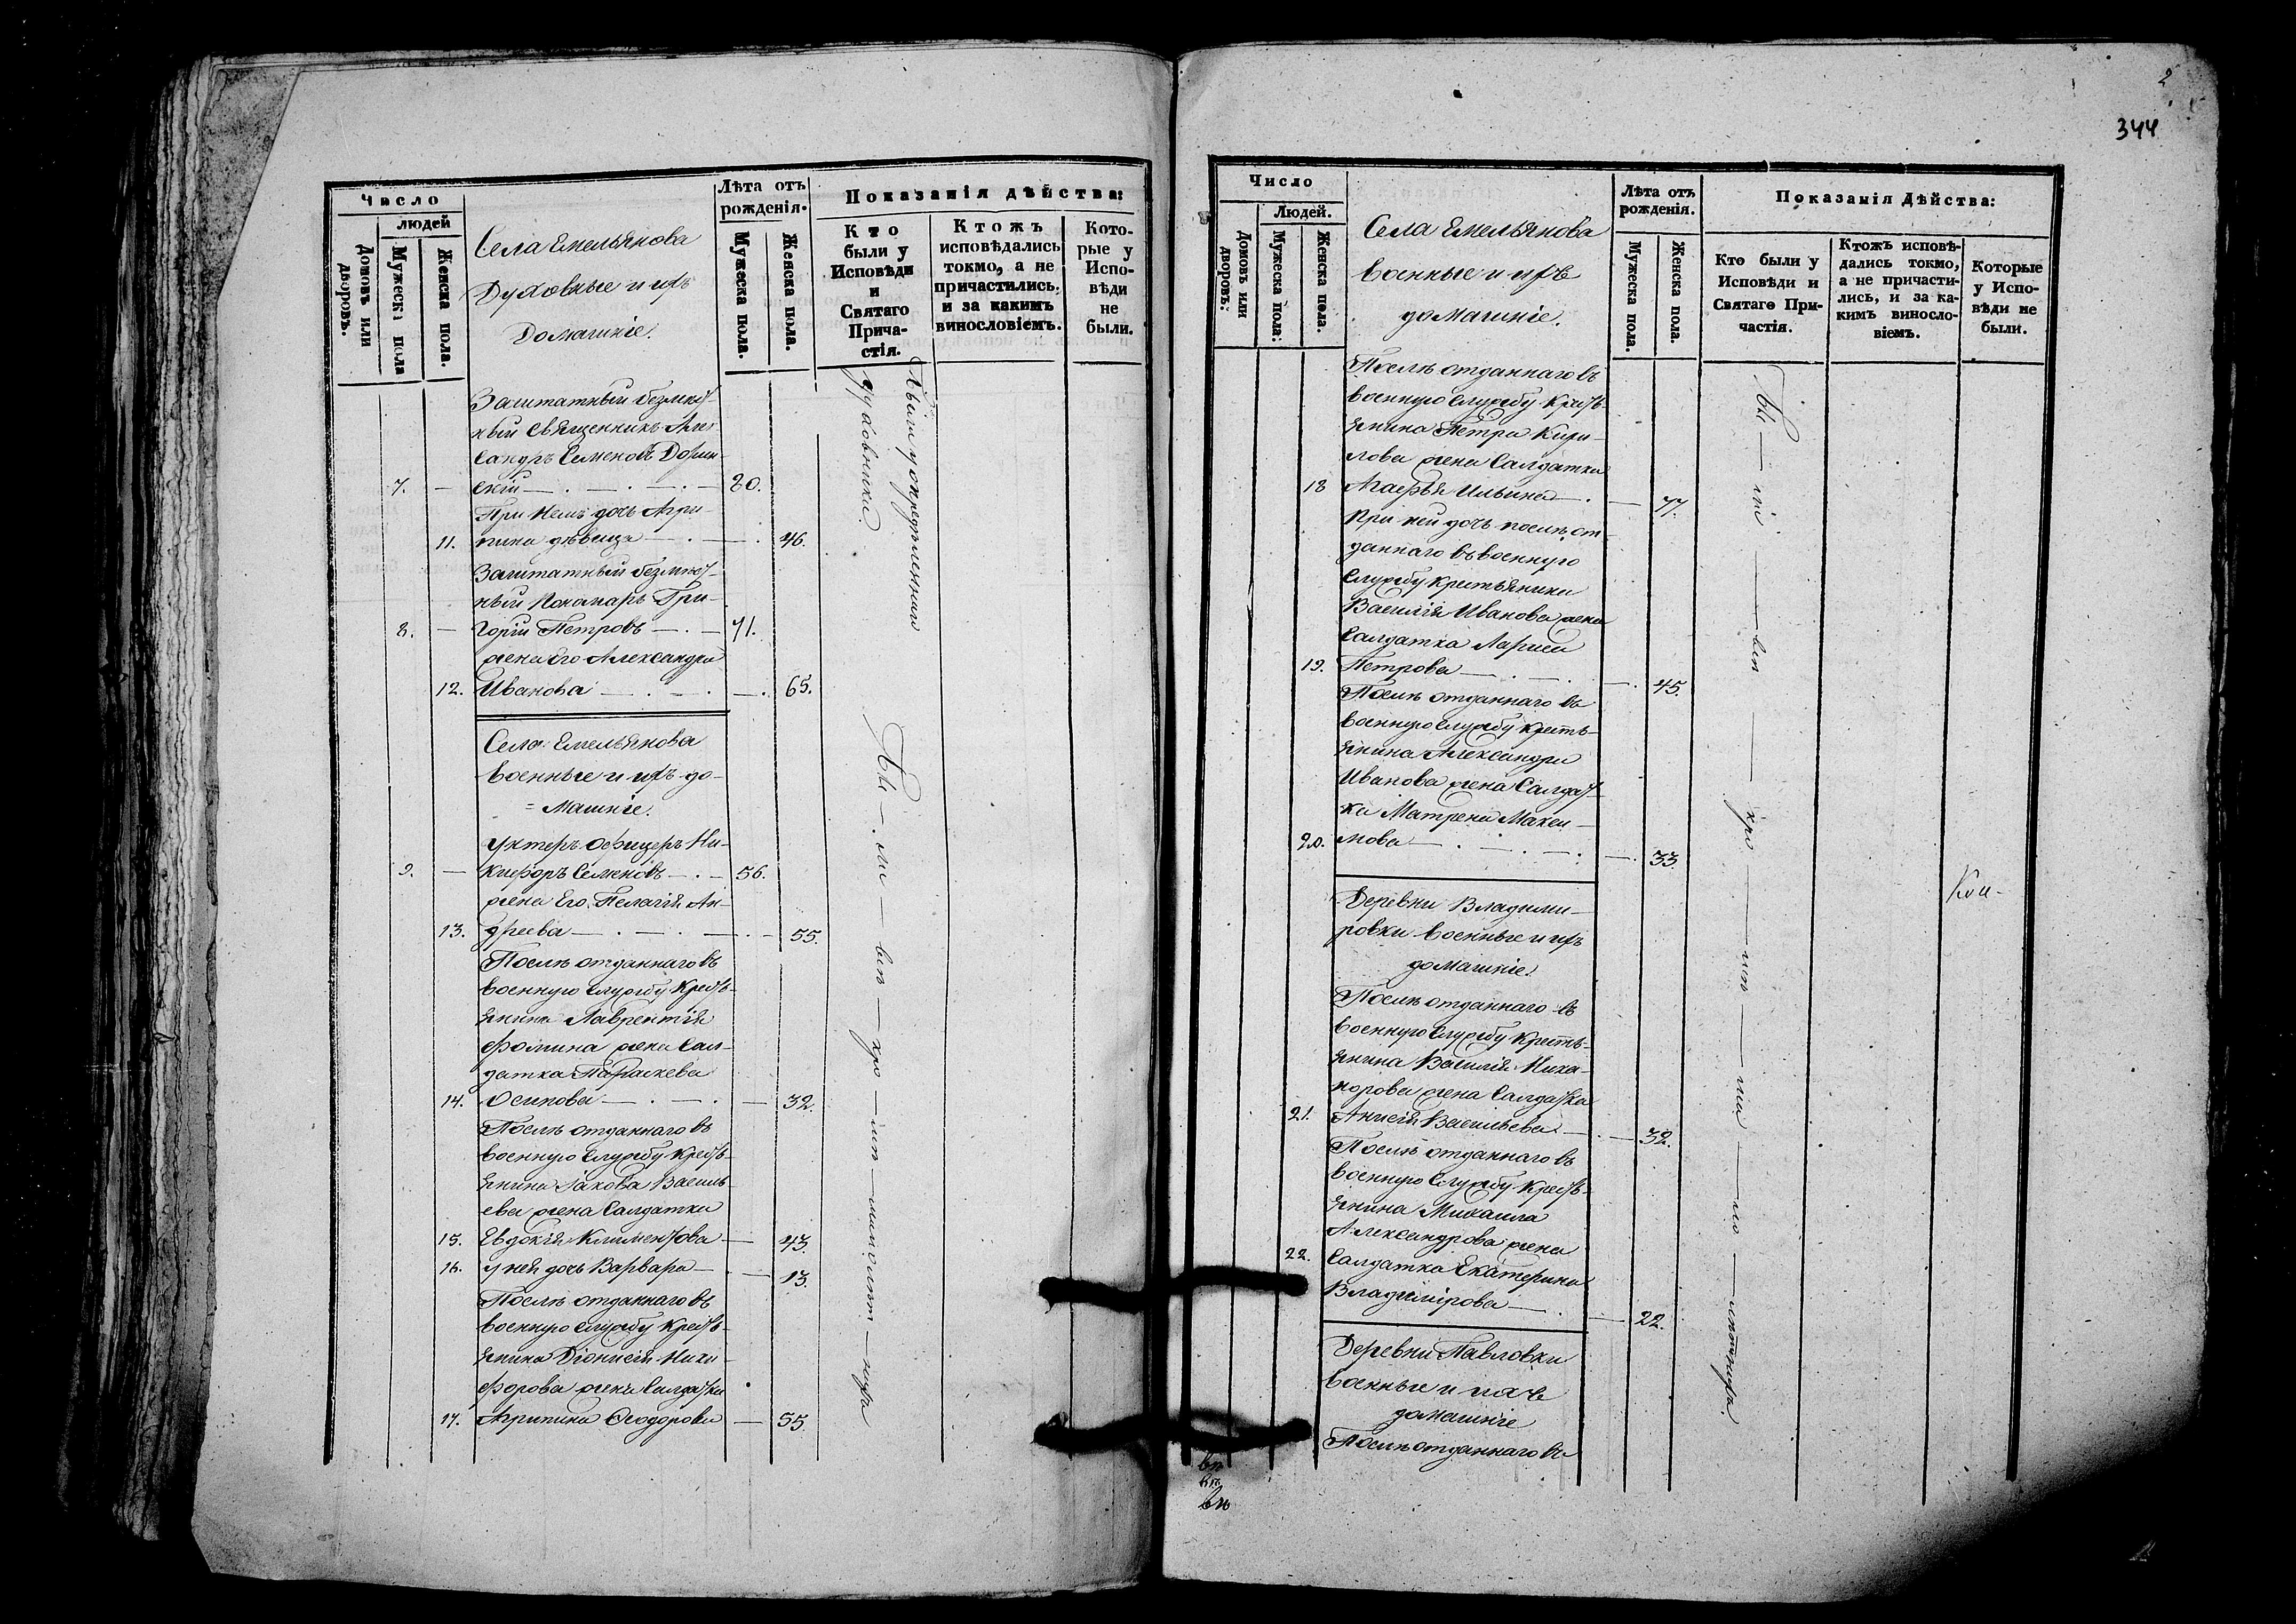 Число
людей
Домовъ или дворовъ.
Мужеска пола
Женска пола.
Села Емельянова
Духовные и ихъ
Домашніе.
Лѣта отъ
рожденія.
Мужеска пола.
Женска пола.
Показанія дѣйства:
Кто
были у
Исповѣди
и
Святаго
Прича-
стія.
Ктожъ
исповѣдались
токмо, а не
причастились,
и за какимъ
винословіемъ.
Кото-
рые у
Испо-
вѣди
не
были.
Заштатный безмѣст-
ный Священникъ Алек
сандръ Семеновъ
7. — скій — . — . — . — 80.
При немъ дочь Агри-
11. пина дѣвица — . — . 46.
Заштатный безмѣст-
ный Пономарь Гри-
8. — горій Петровъ — . — 71.
жена Его Александра
12. Иванова — . — . — . 65.
Села Емельянова
военные и ихъ до-
= машніе.
Унтеръ офицеръ Ни-
9. — кифоръ Семеновъ — . — 56.
жена Его Пелагія Ан-
13. дреева — . — . — . — 55.
Послѣ отданнаго въ
военную службу Кресть-
янина Лаврентія
Фомина жена Сал-
датка Параскева
14. Осипова — . — . — 32.
Послѣ отданнаго въ
военную службу Кресть-
янина Іакова Василь-
ева жена Салдатка
15. Евдокія Климентова — 43.
16. у нея дочь Варвара — . — 13.
Послѣ отданнаго въ
военную службу Кресть-
янина Діонисія Ники-
форова жена Салдатка
17. Агрипина Ѳеодорова — 55.
у духовника
2
344
Число
Людей.
Домовъ или дворовъ:
Мужеска пола:
Женска пола.
Села Емельянова
военные и ихъ
домашніе.
Лѣта отъ
рожденія.
Мужеска пола.
Женска пола.
Показанія Дѣйства:
Кто были у
Исповѣди и
Святаго При-
частія.
Ктожъ исповѣ-
дались токмо,
а не причасти-
лись, и за ка-
кимъ винословіемъ.
Которые
у Испо-
вѣди не
были.
Послѣ отданнаго въ
военную службу Кресть-
янина Петра Кири-
лова жена Салдатка
18 Агафья Ильина — . — 77.
При ней дочь послѣ от
даннаго въ военную
службу крестьянина
Василія Иванова жена
Салдатка Лариса
19. Петрова — . — . — . 45.
Послѣ отданнаго въ
военную службу кресть-
янина Александра
Иванова жена Салдат-
ка Матрена Макси-
20. мова — . — . — . — . 33.
Деревни Владими-
ровки военные и ихъ
домашніе.
Послѣ отданнаго въ
военную службу Кресть-
янина Василія Ника-
норова жена Салдатка
21. Анисія Васильева — . — 32.
Послѣ отданнаго въ
военную службу Кресть-
янина Михаила
Александрова жена
22. Салдатка Екатерина
Владимірова — . — 22.
Деревни Павловки
военные и ихъ
домашніе
Послѣ отданнаго въ